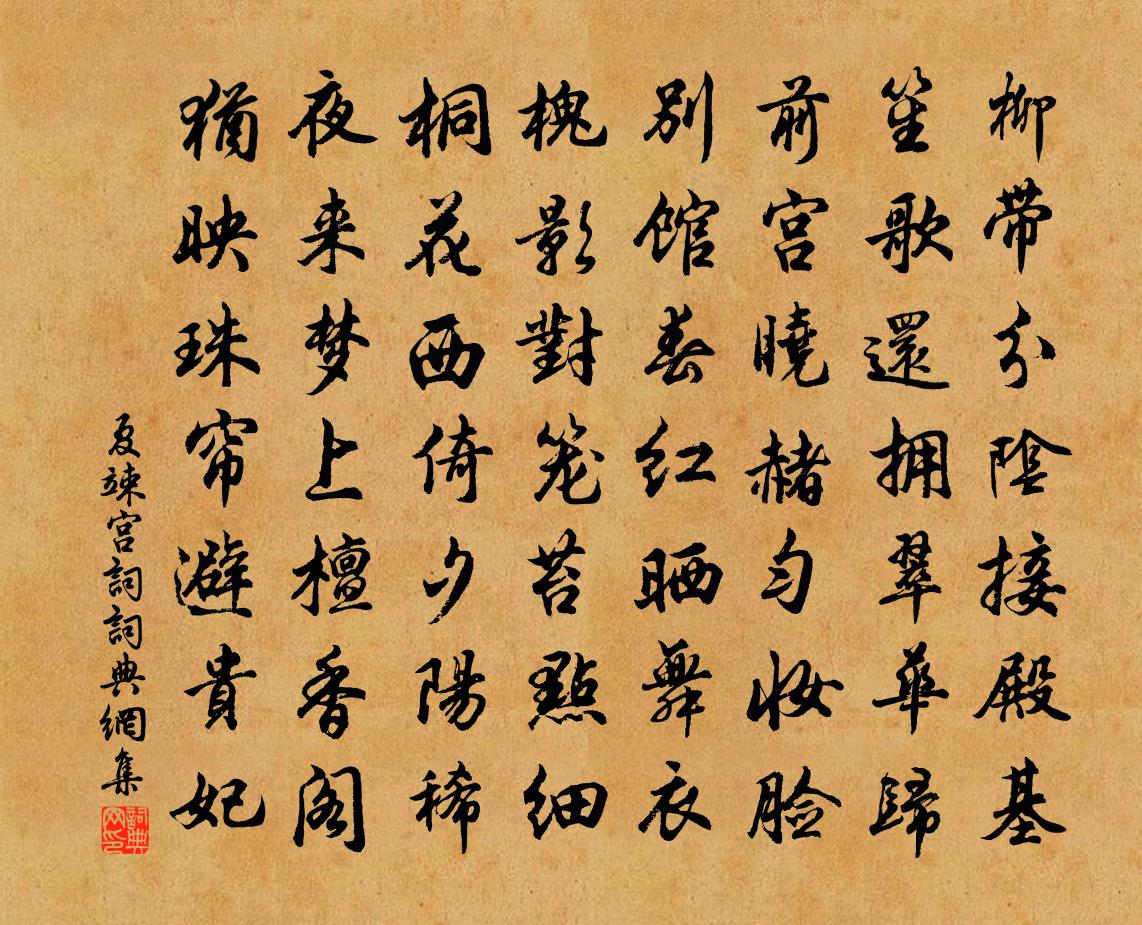 柳带分陰接殿基
笙歌還拥翠華歸
前宫曉赭匀妆脸
别馆春红晒舞衣
槐影對笼苔點细
桐花西倚夕陽稀
夜来梦上檀香阁
猶映珠帘避貴妃
夏竦宫詞詞典網集
詞典网印